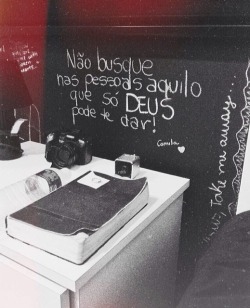 Não busque
nas pessoas aquilo
que só DEUS
pode te dar!
Camila
Take me away...